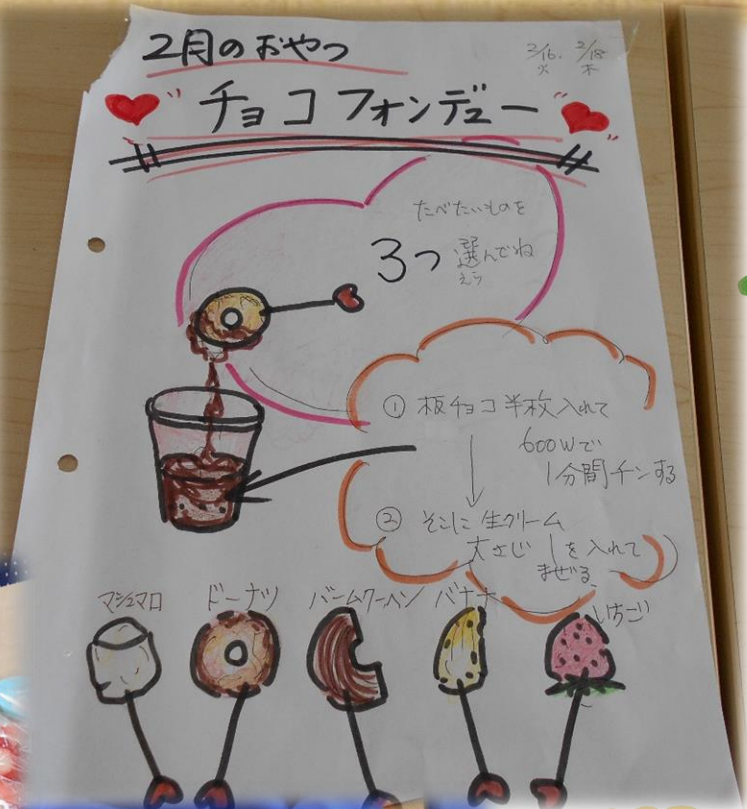 2月のおやつ
2/16. 2/18
火 木
チョコフォンデュー
たべたいものを
3つ選んでね
えら
① 板チョコ半枚入れて
600Wで
1分間チンする
② そこに生クリーム
大さじ1を入れて
まぜる
マシュマロ ドーナツ バームクーヘン バナナ いちご